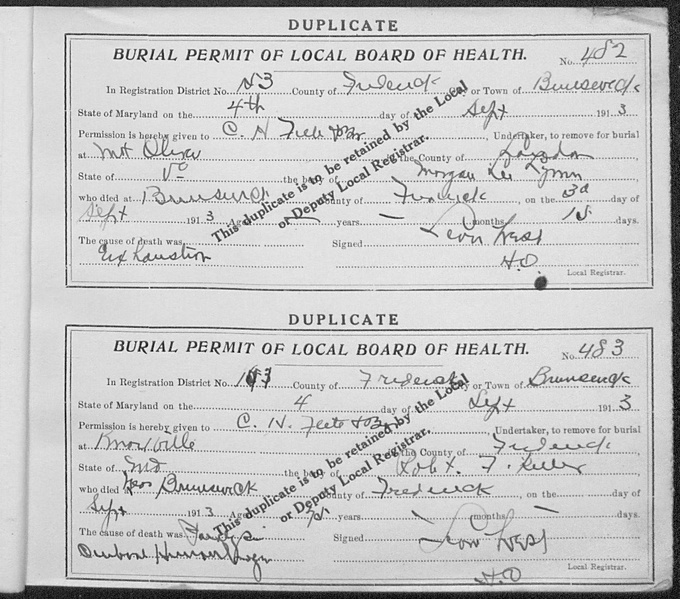 DUPLICATE
BURIAL PERMIT OF LOCAL BOARD OF HEALTH.
No. 482
In Registration District No. 153 County of Frederick City or Town of Brunswick
State of Maryland on the 4th day of Sept 1913
Permission is hereby given to C. H. Feete & Bro, Undertaker, to remove for burial
at Mt Olivet in the County of Loudon
State of Va the body of Morgan Lee
who died at Brunswick County of Frederick, on the 3d
Sept 1913 Aged — years. — months 15 days.
The cause of death was Signed Leon West
Exhaustion H.O.
Local Registrar.
This duplicate is to be retained by the Local
or Deputy Local Registrar.
DUPLICATE
BURIAL PERMIT OF LOCAL BOARD OF HEALTH.
No. 483
In Registration District No. 153 County of Frederick City or Town of Brunswick
State of Maryland on the 4 day of Sept 1913
Permission is hereby given to C. H. Feete & Bro, Undertaker, to remove for burial
at Knoxville in the County of Frederick
State of Md the body of Robt. F.
who died near Brunswick County of Frederick, on the day of
Sept 1913 Aged years — months — days.
The cause of death was Signed Leon West
H.O
Local Registrar.
This duplicate is to be retained by the Local
or Deputy Local Registrar.